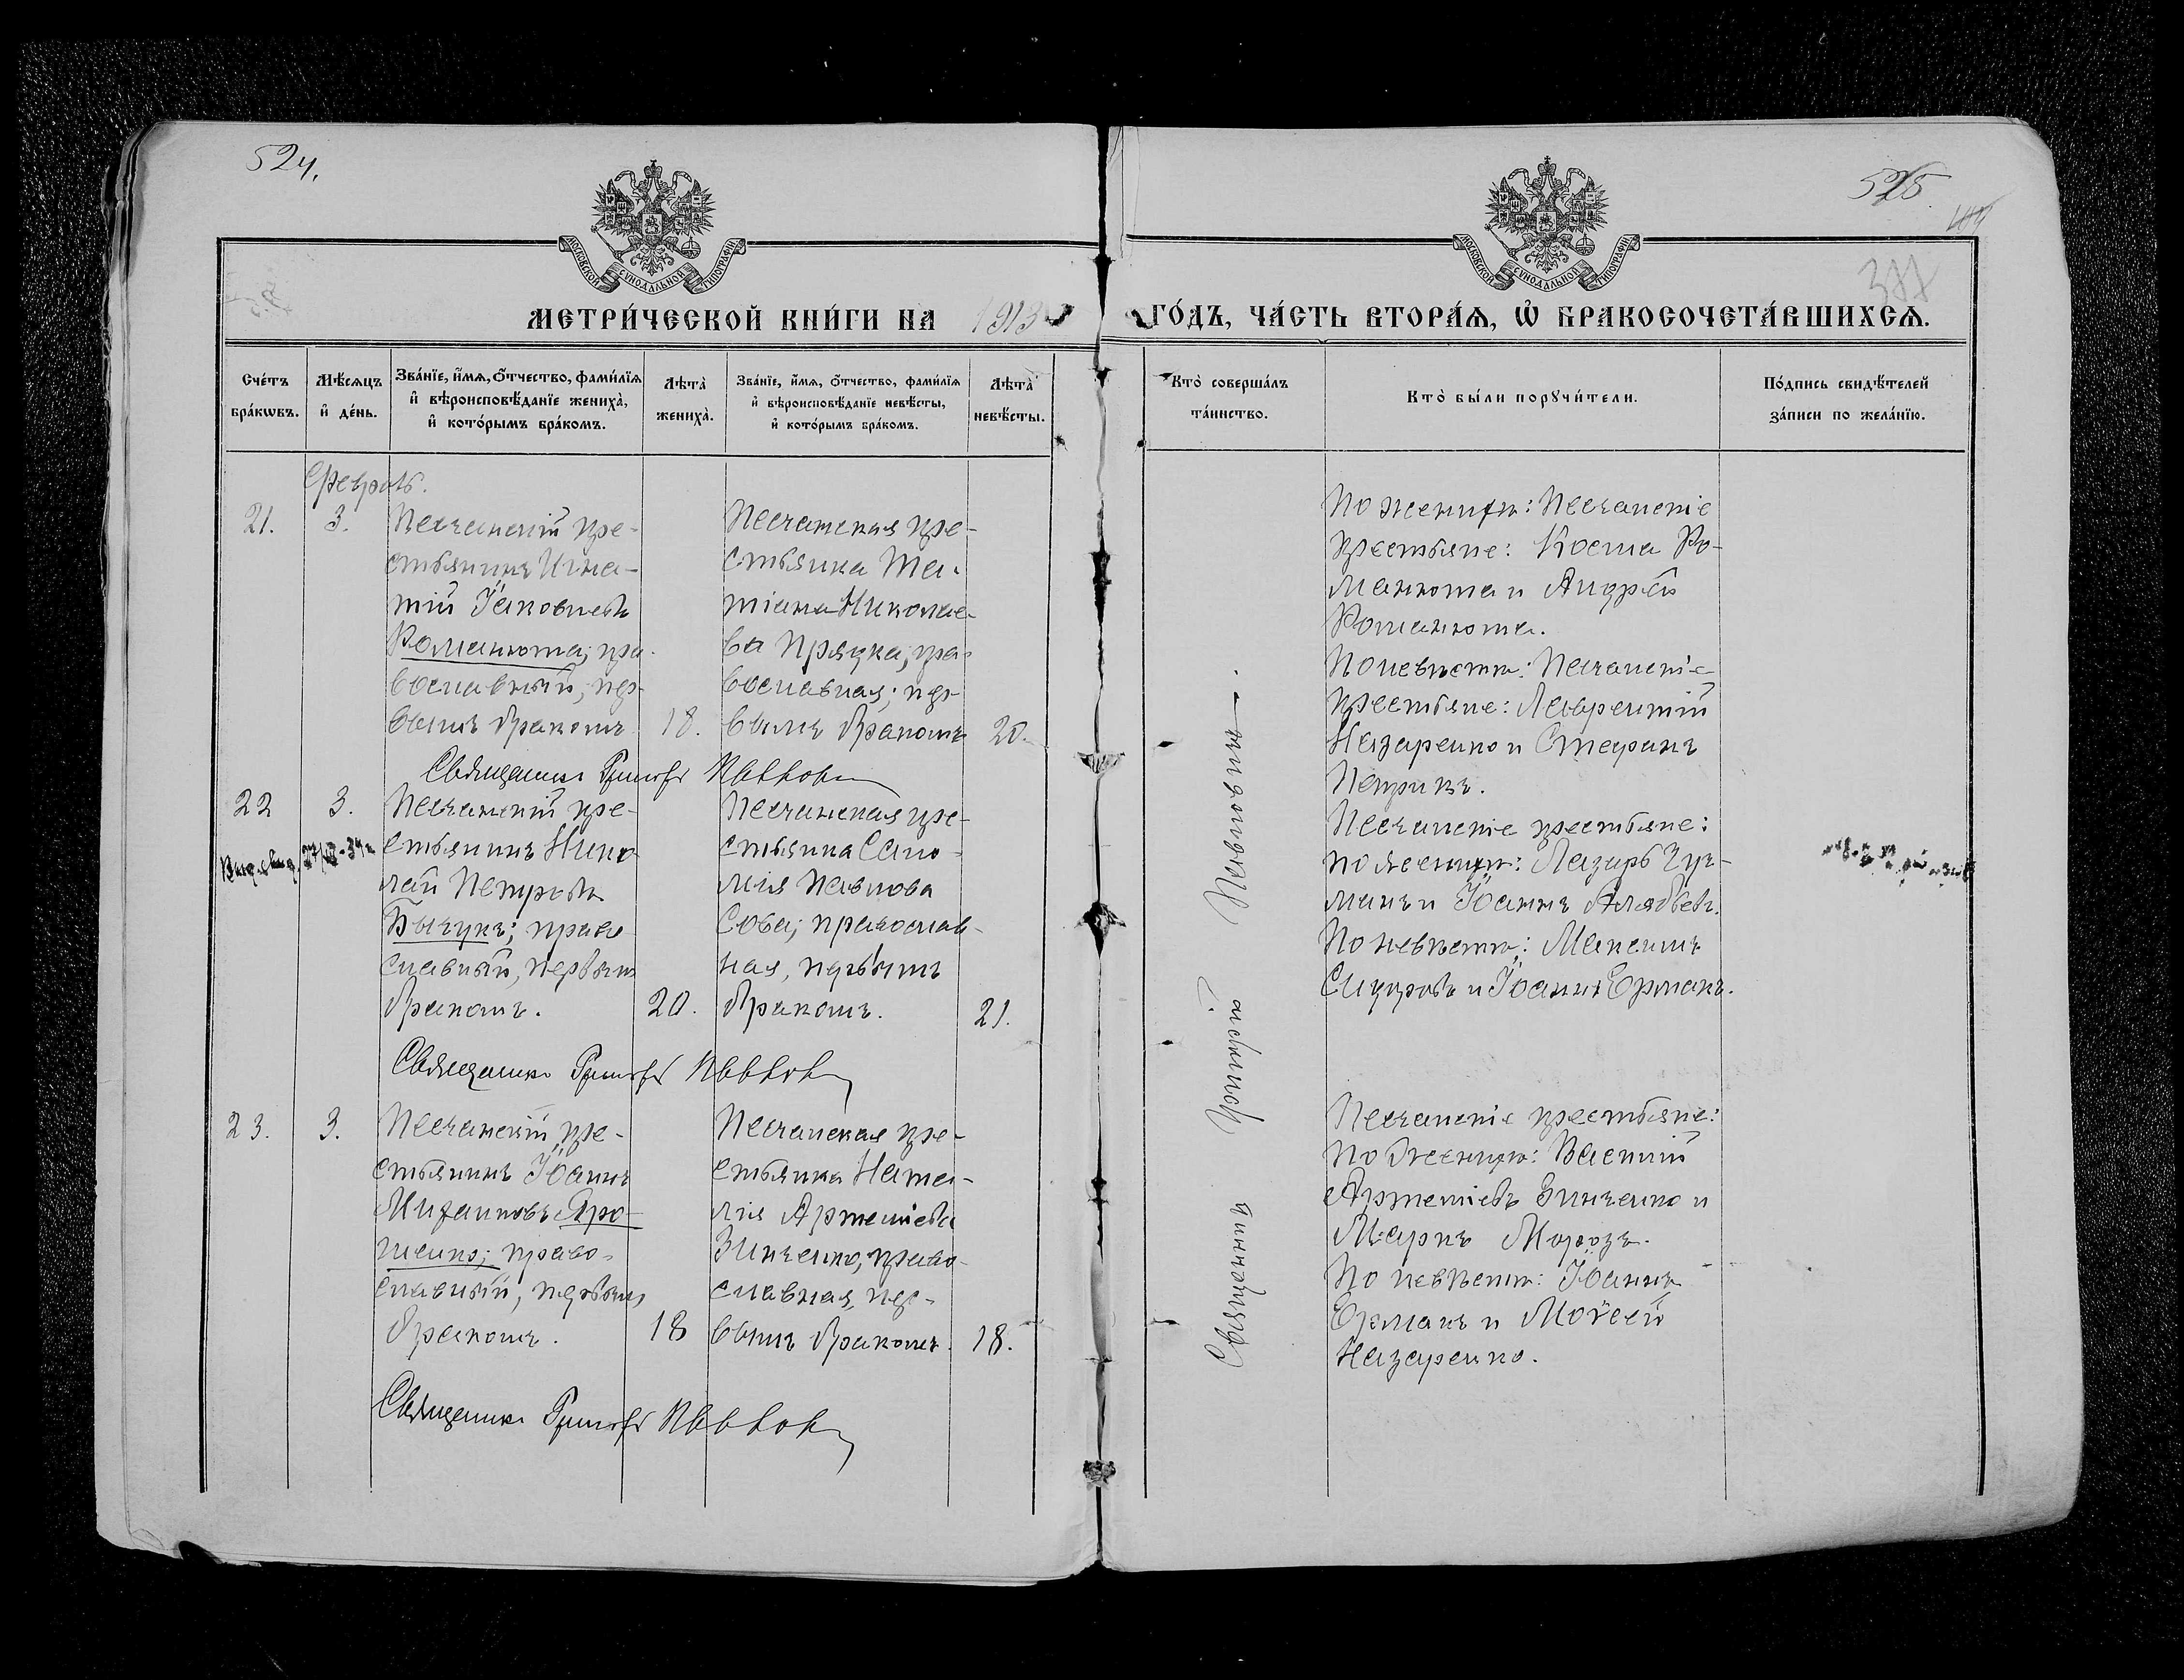 524.
525
377
МОСКОВСКОЙ СѴНОДАЛЬНОЙ ТИПОГРАФІИ
МОСКОВСКОЙ СѴНОДАЛЬНОЙ ТИПОГРАФІИ
МЕТРИ́ЧЕСКОЙ КНИ́ГИ НА 1913 ГО́ДЪ, ЧА́СТЬ ВТОРА́Я, Ѡ҆ БРАКОСОЧЕТА́ВШИХСЯ.
Сче́тъ бра́кѡвъ.
Мѣ́сяцъ и҆ де́нь.
Зва́нїе, и҆́мя, ѻ҆́тчество, фами́лїя и҆ вѣроисповѣ́данїе жениха̀, и҆ кото́рымъ бра́комъ.
Лѣта̀ жениха̀.
Зва́нїе, и҆́мя, ѻ҆́тчество, фами́лїя и҆ вѣроисповѣ́данїе невѣ́сты, и҆ кото́рымъ бра́комъ.
Лѣта̀ невѣ́сты.
Кто̀ соверша́лъ та́инство.
Кто̀ бы́ли порꙋчи́тели.
По́дпись свидѣ́телей за́писи по жела́нїю.
Февраль.
21.
3.
Песчанскій кре-
стьянинъ Игна-
тій Іаковлевъ
Романюта; пра-
вославный, пер-
вымъ бракомъ
18.
Песчанская кре-
стьянка Та-
тіана Николае-
ва Пряцка; пра-
вославная; пер-
вымъ бракомъ
20.
Священникъ Григорій Павловъ
По женихѣ: Песчанскіе
крестьяне: Косма Ро-
манюта и Андрей
Романюта.
По невѣстѣ: Песчанскіе
крестьяне: Лаврентій
Назаренко и Стефанъ
Петрикъ.
22
3.
Песчанскій кре-
стьянинъ Нико-
лай Петровъ
Бычукъ; право-
славный, первымъ
бракомъ.
20.
Песчанская кре-
стьянка Сало-
мія Павлова
Сова; православ-
ная, первымъ
бракомъ.
21.
Священникъ Григорій Павловъ
Песчанскіе крестьяне:
по женихѣ: Лазарь Гуз-
манъ и Іоаннъ Алябьевъ.
По невѣстѣ: Максимъ
Сидоровъ и Іоаннъ Ермакъ.
23.
3.
Песчанскій кре-
стьянинъ Іоаннъ
Михаиловъ Яро-
шенко; право-
славный, первымъ
бракомъ.
18
Песчанская кре-
стьянка Ната-
лія Артеміева
Зинченко, право-
славная, пер-
вымъ бракомъ.
18.
Священникъ Григорій Павловъ
Песчанскіе крестьяне:
По женихѣ: Василій
Артеміевъ Зинченко и
Маркъ Морозъ.
По невѣстѣ: Іоаннъ
Ермакъ и Моѵсей
Назаренко.
Священникъ